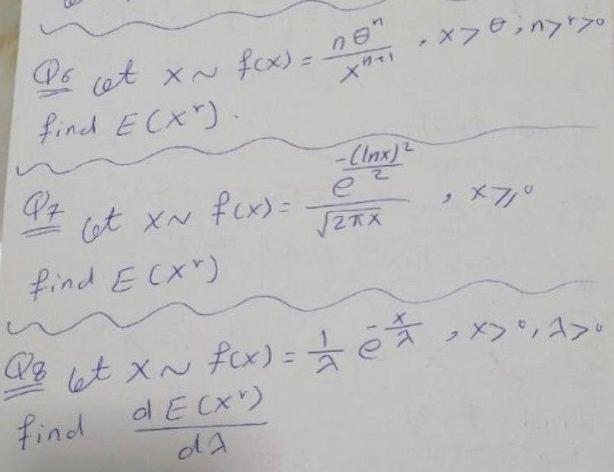 Q6 Let X ~ f(x) = nθⁿ / xⁿ⁺¹ , x > θ , n > r > 0
find E(Xʳ).
Q7 Let X ~ f(x) = e^(-(lnx)²/2) / √(2πx) , x ≥ 0
find E(Xʳ)
Q8 Let X ~ f(x) = 1/λ e^(-x/λ) , x > 0, λ > 0
find dE(Xʳ)/dλ